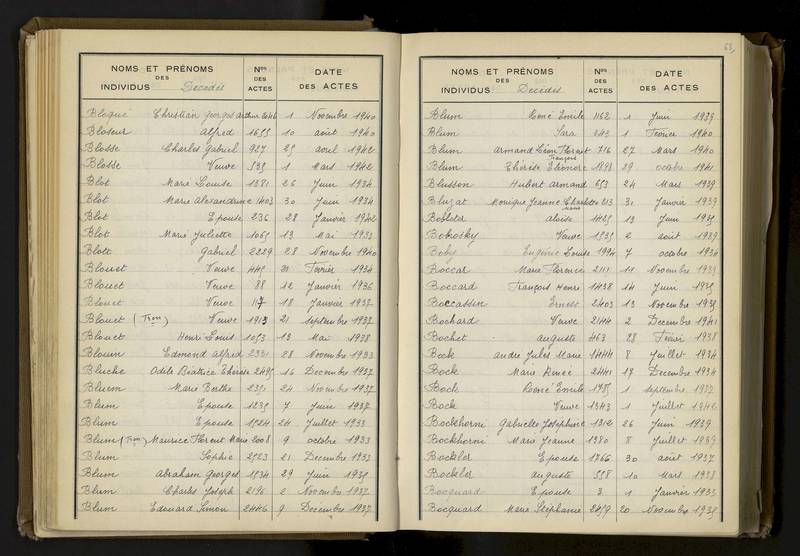 NOMS ET PRÉNOMS DES INDIVIDUS Décédés Nos DES ACTES DATE DES ACTES
Bloqué Christian Georges Arthur 2246 1 Novembre 1940
Bloseur Alfred 1655 10 août 1940
Blosse Charles Gabriel 927 25 avril 1942
Blosse Veuve 535 1 Mars 1942
Blot Marie Louise 1381 26 Juin 1934
Blot Marie Alexandrine 1403 30 Juin 1934
Blot Epouse 236 28 Janvier 1942
Blot Marie Juliette 1065 13 Mai 1933
Blott Gabriel 2229 28 Novembre 1940
Blouet Veuve 445 Février 1934
Blouet Veuve 88 12 Janvier 1936
Blouet Veuve 117 18 Janvier 1937
Blouet (Tron) Veuve 1913 21 septembre 1937
Blouet Henri Louis 1053 13 Mai 1938
Bloum Edmond Alfred 2331 28 Novembre 1933
Bluche Odile Béatrice Thérèse 2495 16 Décembre 1937
Bluem Marie Berthe 2351 24 Novembre 1937
Blum Epouse 1235 7 Juin 1937
Blum Epouse 1524 24 Juillet 1933
Blum (Tron) Maurice Florent Marie 2008 9 octobre 1933
Blum Sophie 2523 21 Décembre 1933
Blum Abraham Georges 1534 29 Juin 1935
Blum Charles Joseph 2196 2 Novembre 1937
Blum Edouard Simon 2446 9 Décembre 1937
63
NOMS ET PRÉNOMS DES INDIVIDUS Décédés Nos DES ACTES DATE DES ACTES
Blum René Emile 1162 1 Juin 1939
Blum Sara 243 1 Février 1940
Blum Armand Léon Florent 716 27 Mars 1940
Blum Thérèse Eléonore 1898 29 octobre 1941
Blusson Hubert Armand 653 24 Mars 1939
Bluzat Monique Jeanne Charlotte 213 31 Janvier 1939
Bobleter Aloïse 1425 13 Juin 1935
Bobosky Veuve 1535 2 août 1939
Boby Eugénie Louise 1994 7 octobre 1934
Boccar Marie Florence 2111 11 Novembre 1933
Boccard François Henri 1438 14 Juin 1935
Boccassin Ernest 2403 13 Novembre 1935
Bochard Veuve 2144 2 Décembre 1941
Bochet Auguste 463 28 Février 1938
Bock André Jules Marie 1444 8 Juillet 1934
Bock Marie Renée 2441 17 Décembre 1934
Bock René Emile 1785 1 septembre 1937
Bock Veuve 1343 1 Juillet 1942
Bockhorni Gabrielle Joséphine 1312 26 Juin 1939
Bockhorni Marie Jeanne 1380 8 Juillet 1939
Bockler Epouse 1766 30 août 1937
Bockler Auguste 558 10 Mars 1938
Bocquard Epouse 3 1 Janvier 1933
Bocquard Marie Stéphanie 2459 20 Novembre 1935